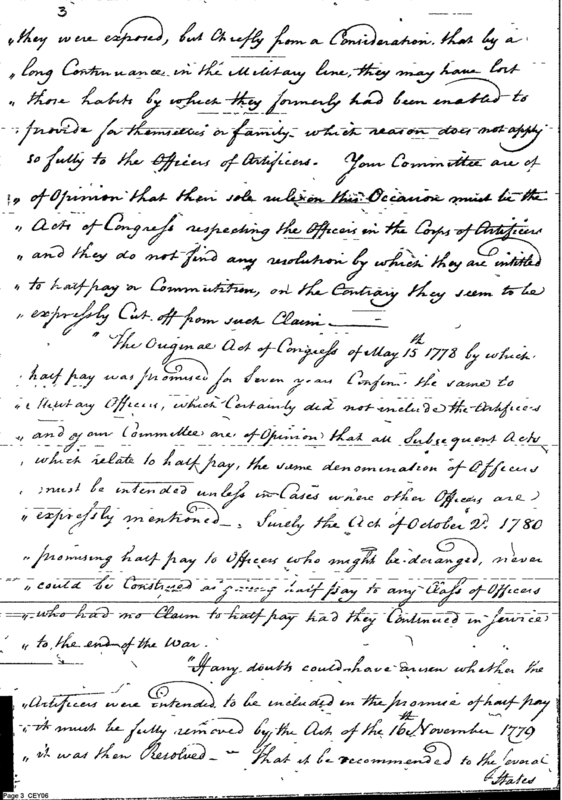 3
"they were exposed, but Chiefly from a Consideration that by a
"long Continuance in the Military line, they may have lost
"those habits by which they formerly had been enabled to
"provide for themselves or family - which reason does not apply
so fully to the Officers of Artificers. Your Committee are of
"of Opinion that their sole rule on this Occasion must be the
"Acts of Congress respecting the Officers in the Corps of Artificers
"and they do not find any resolution by which they are intitled
"to half pay or Commutation, on the Contrary they seem to be
"expressly Cut off from such Claim
"The Original Act of Congress of May 15th 1778 by which
half pay was promised for Seven years Confin the same to
Military Officers, which Certainly did not include the Artificers
"and your Committee are of Opinion that all Subsequent Acts
which relate to half pay, the same denomination of Officers
must be intended unless in Cases where other Officers are
"expressly mentioned. Surely the Act of October 2d. 1780
"promising half pay to Officers who might be deranged, never
"could be Construed as giving half pay to any Class of Officers
"who had no Claim to half pay had they Continued in Service
"to the end of the War.
"If any doubts could have arisen whether the
"Artificers were intended to be included in the promise of half pay
"it must be fully removed by the Act of the 16th November 1779
"it was then Resolved - That it be recommended to the Several
States
Page 3 CEY06